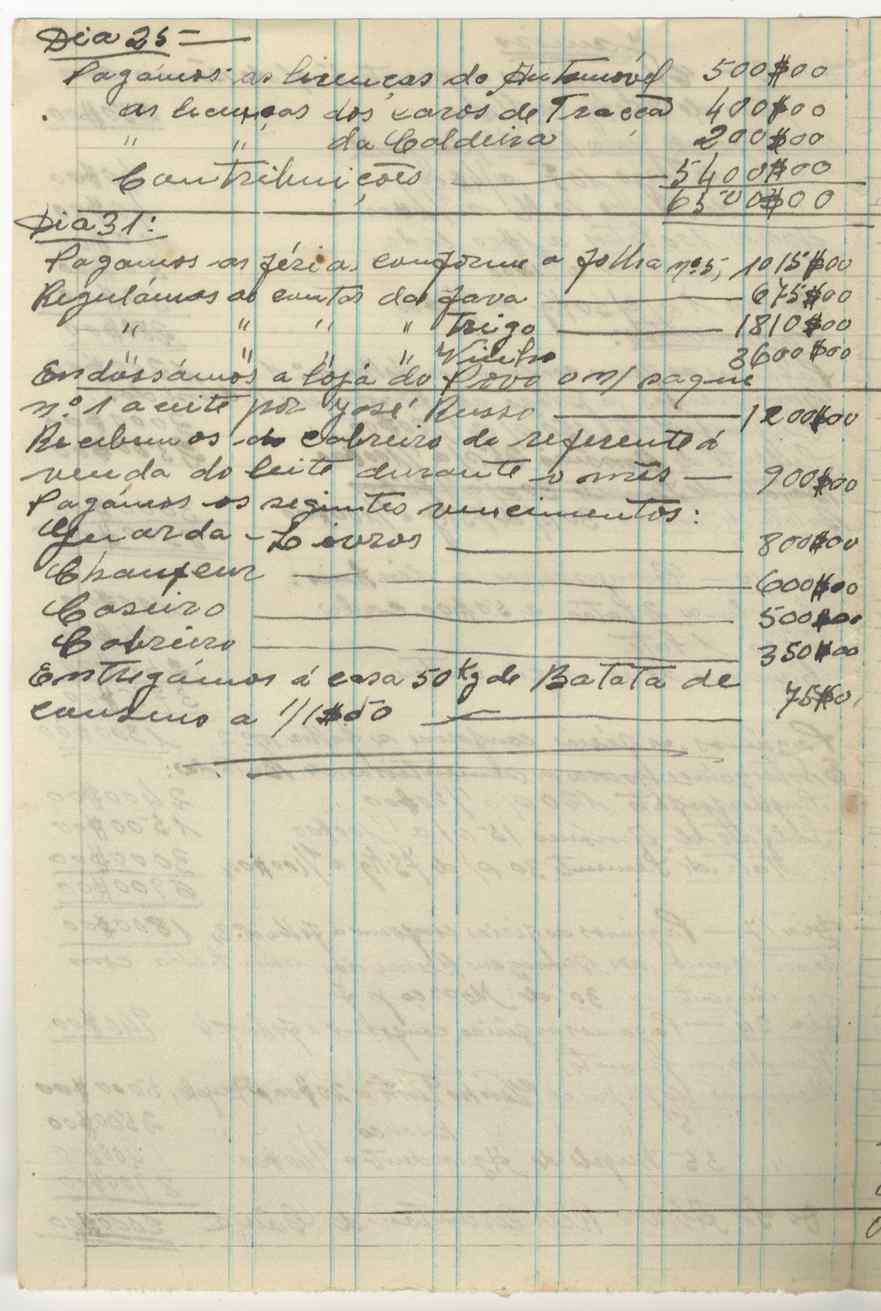 Dia 25 —
Pagámos as licenças do Automóvel 500$00
as licenças dos caros de Tracção 400$00
" " da Caldeira 200$00
Contribuições — 5400$00
6500$00
Dia 31:
Pagamos as férias conforme a folha nº5, 1015$00
Regulámos as contas da fava — 675$00
" " " " Trigo — 1810$00
" " " " Vinho 3600$00
Endossámos a loja do Povo o n/ saque
nº 1 aceite por José Russo — 1200$00
Recebemos do cabreiro do referente á
venda do leite durante o mês — 900$00
Pagámos os segintes vencimentos:
Guarda-Livros — 800$00
Chaufeur — 600$00
Caseiro — 500$00
Cabreiro — 350$00
Entregámos á casa 50 Kg de Batata de
consumo a 1/1$50 — 75$00